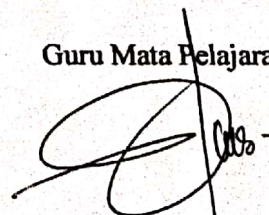 Guru Mata Pelajara